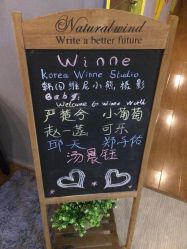 Naturalwind
Write a better future
Winne
Korea Winne Studio
韩国维尼小熊摄影
Baby:
Welcome to winne World
严赞今 小葡萄
赵一菡 可乐
邱天 郑子佑
汤晨钰